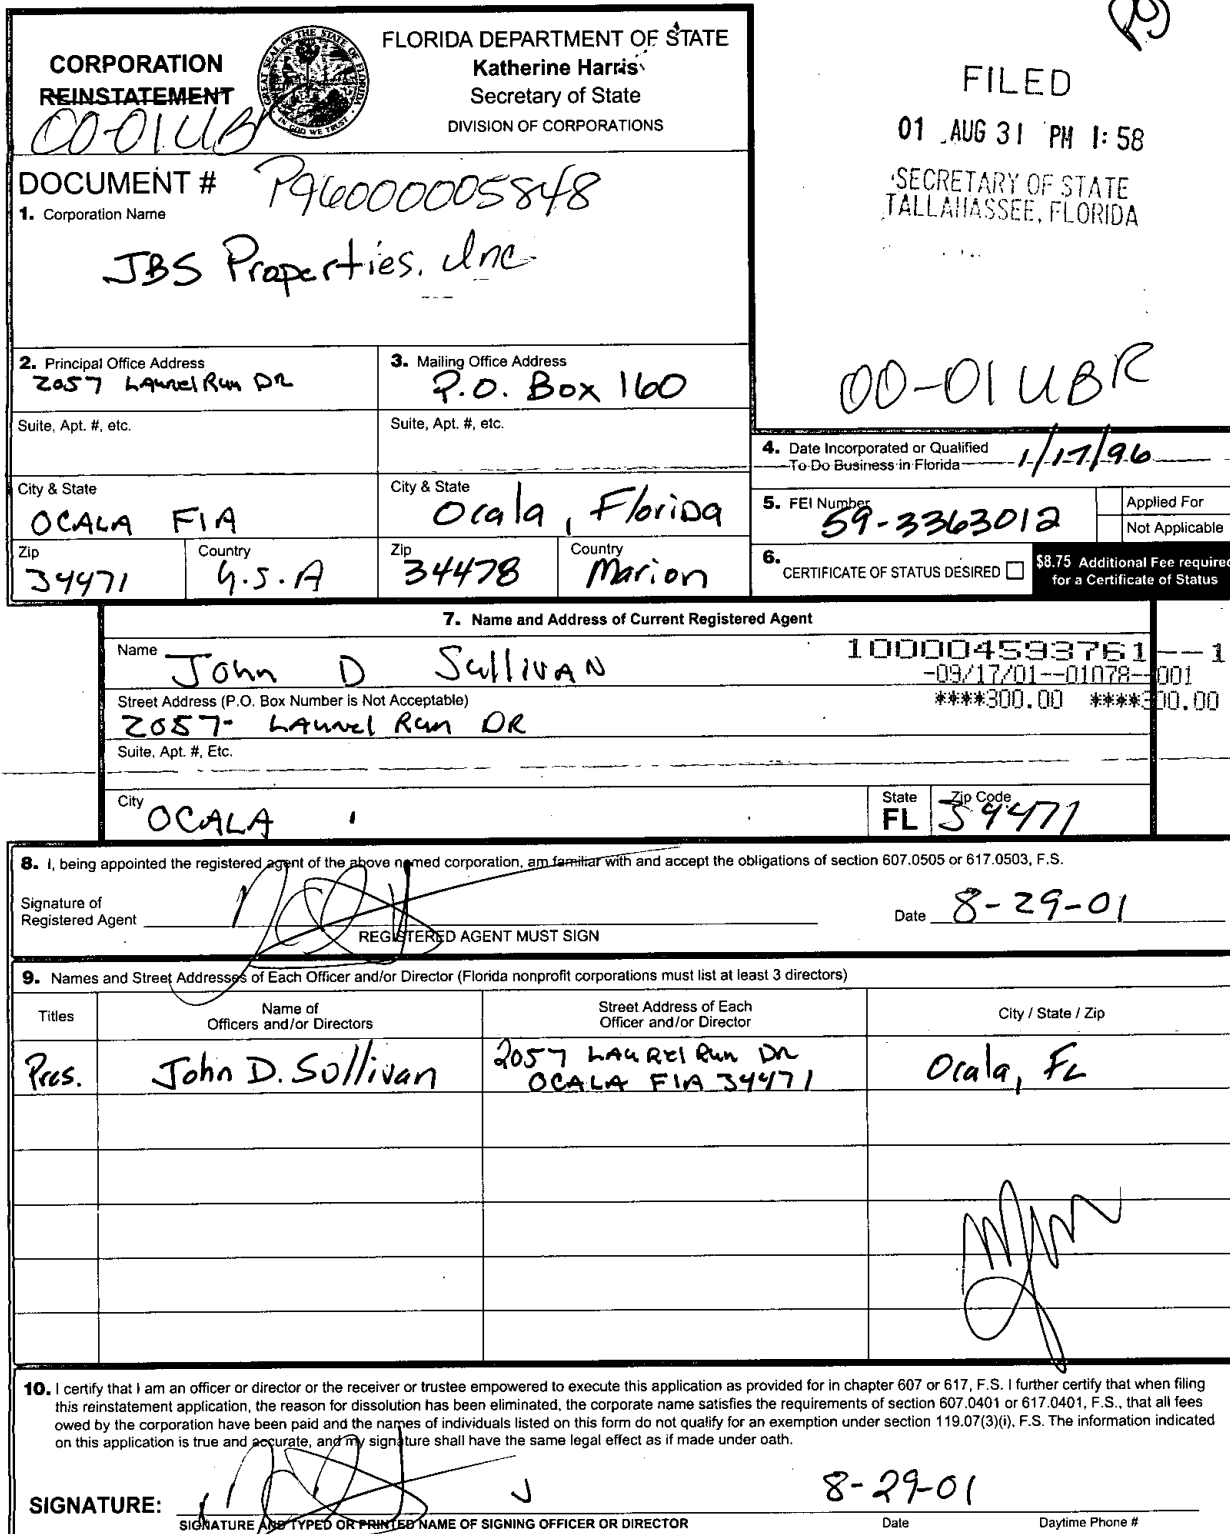 CORPORATION
REINSTATEMENT
00-01 UBR
GREAT SEAL OF THE STATE OF FLORIDA
IN GOD WE TRUST
FLORIDA DEPARTMENT OF STATE
Katherine Harris
Secretary of State
DIVISION OF CORPORATIONS
FILED
01 AUG 31 PM 1:58
SECRETARY OF STATE
TALLAHASSEE, FLORIDA
DOCUMENT # P96000005848
1. Corporation Name
JBS Properties, Inc.
00-01 UBR
2. Principal Office Address
2057 LAurel Run DR
3. Mailing Office Address
P.O. Box 160
Suite, Apt. #, etc.
Suite, Apt. #, etc.
4. Date Incorporated or Qualified
To Do Business in Florida 1/17/96
City & State
OCALA FlA
City & State
Ocala, Florida
5. FEI Number
59-3363012
Applied For
Not Applicable
Zip
34471
Country
U.S.A
Zip
34478
Country
Marion
6. CERTIFICATE OF STATUS DESIRED
$8.75 Additional Fee required
for a Certificate of Status
7. Name and Address of Current Registered Agent
Name John D Sullivan
100004593761--1
-09/17/01--01078--001
****300.00 ****300.00
Street Address (P.O. Box Number is Not Acceptable)
2057- LAurel Run DR
Suite, Apt. #, Etc.
City OCALA
State
FL
Zip Code
34471
8. I, being appointed the registered agent of the above named corporation, am familiar with and accept the obligations of section 607.0505 or 617.0503, F.S.
Signature of
Registered Agent
REGISTERED AGENT MUST SIGN
Date 8-29-01
9. Names and Street Addresses of Each Officer and/or Director (Florida nonprofit corporations must list at least 3 directors)
Titles
Name of
Officers and/or Directors
Street Address of Each
Officer and/or Director
City / State / Zip
Pres.
John D. Sullivan
2057 LAuRel Run DR
OCALA FlA 34471
Ocala, FL
10. I certify that I am an officer or director or the receiver or trustee empowered to execute this application as provided for in chapter 607 or 617, F.S. I further certify that when filing
this reinstatement application, the reason for dissolution has been eliminated, the corporate name satisfies the requirements of section 607.0401 or 617.0401, F.S., that all fees
owed by the corporation have been paid and the names of individuals listed on this form do not qualify for an exemption under section 119.07(3)(i), F.S. The information indicated
on this application is true and accurate, and my signature shall have the same legal effect as if made under oath.
SIGNATURE:
8-29-01
SIGNATURE AND TYPED OR PRINTED NAME OF SIGNING OFFICER OR DIRECTOR
Date
Daytime Phone #